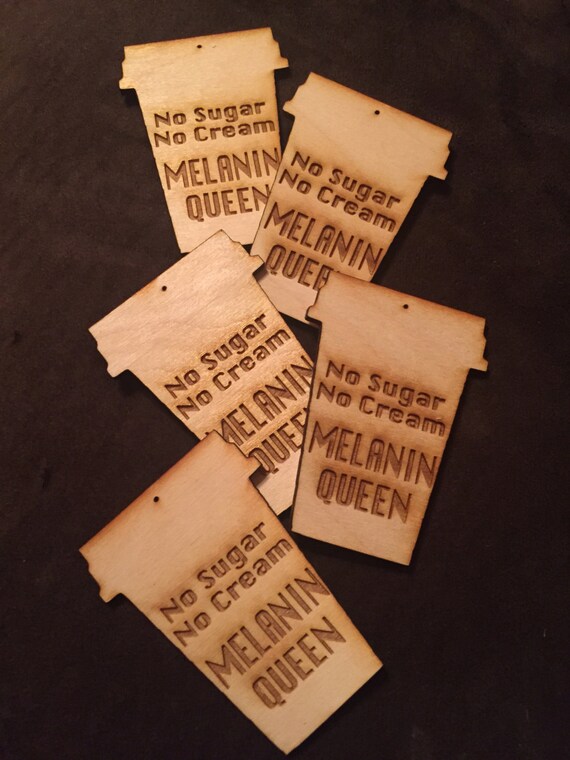 No Sugar
No Cream
MELANIN
QUEEN
No Sugar
No Cream
MELANIN
QUEE
No Sugar
No Cream
MELANIN
QUEEN
No Sugar
No Cream
MELANIN
QUEEN
No Sugar
No Cream
MELANIN
QUEEN